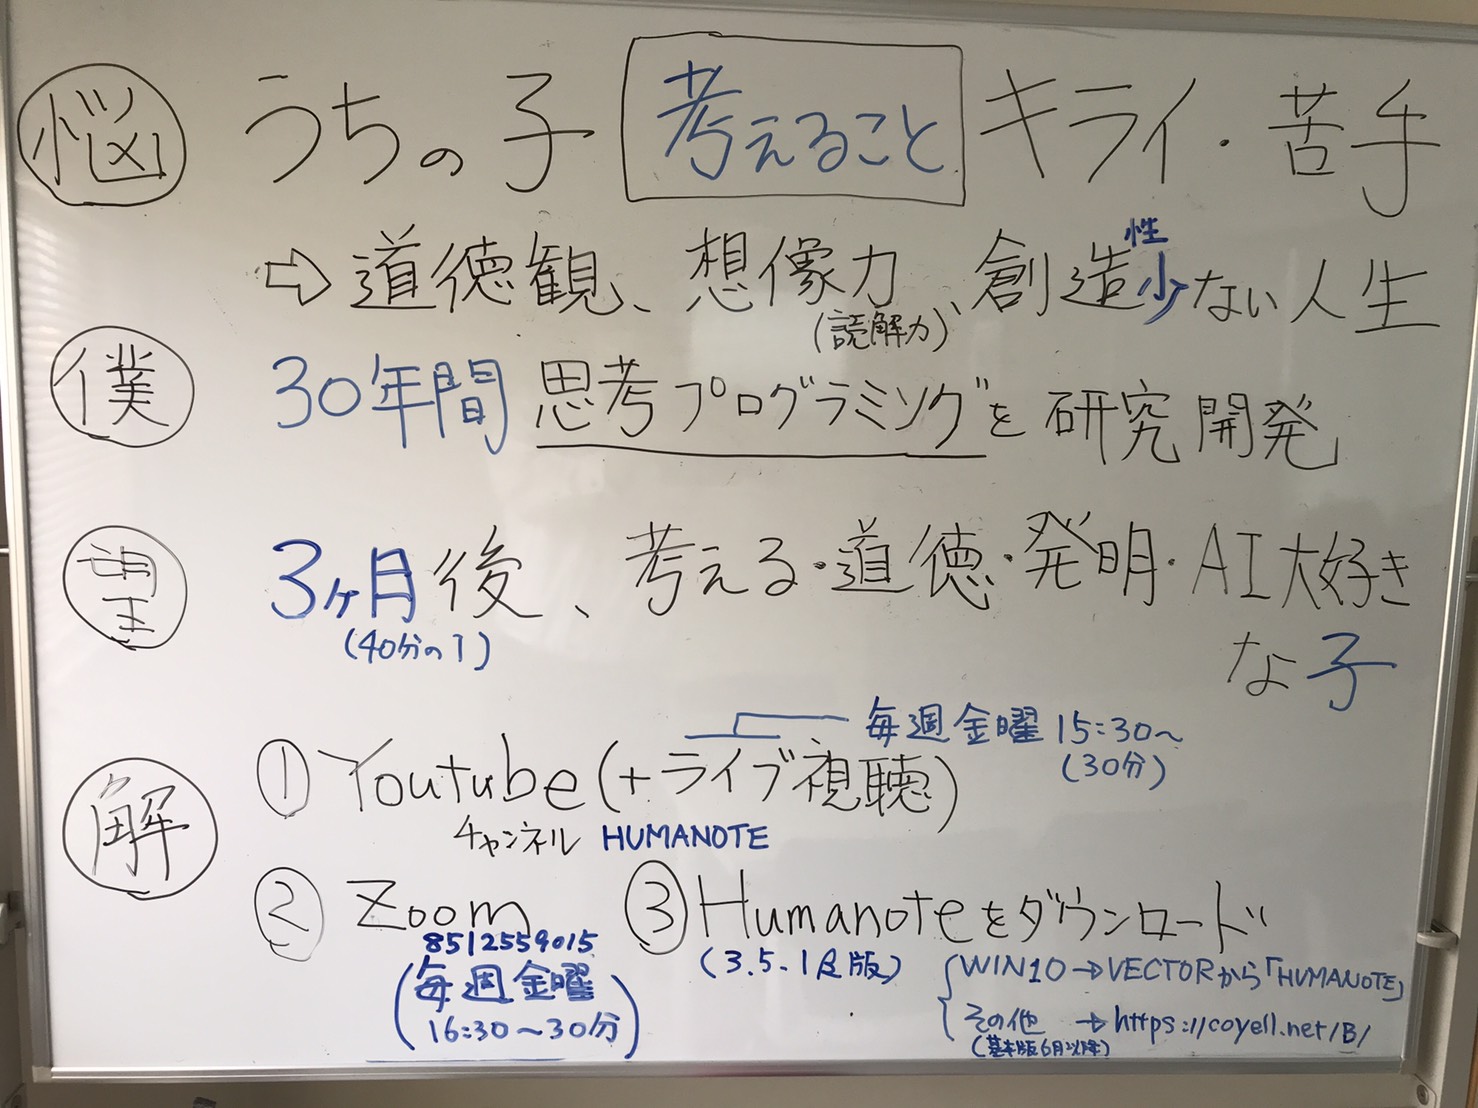 悩 うちの子 考えること キライ・苦手
⇨道徳観、想像力、創造性少ない人生
(読解力)
僕 30年間 思考プログラミングを研究開発
望 3ヶ月後、考える・道徳・発明・AI大好き
(40分の1)
な子
毎週金曜 15:30〜
(30分)
解 ① Youtube(+ライブ視聴)
チャンネル HUMANOTE
② Zoom
8512559015
(毎週金曜
16:30〜30分)
③ Humanoteをダウンロード
(3.5.1β版)
WIN10→VECTORから「HUMANOTE」
その他 →https://coyell.net/B/
(基本版6月以降)